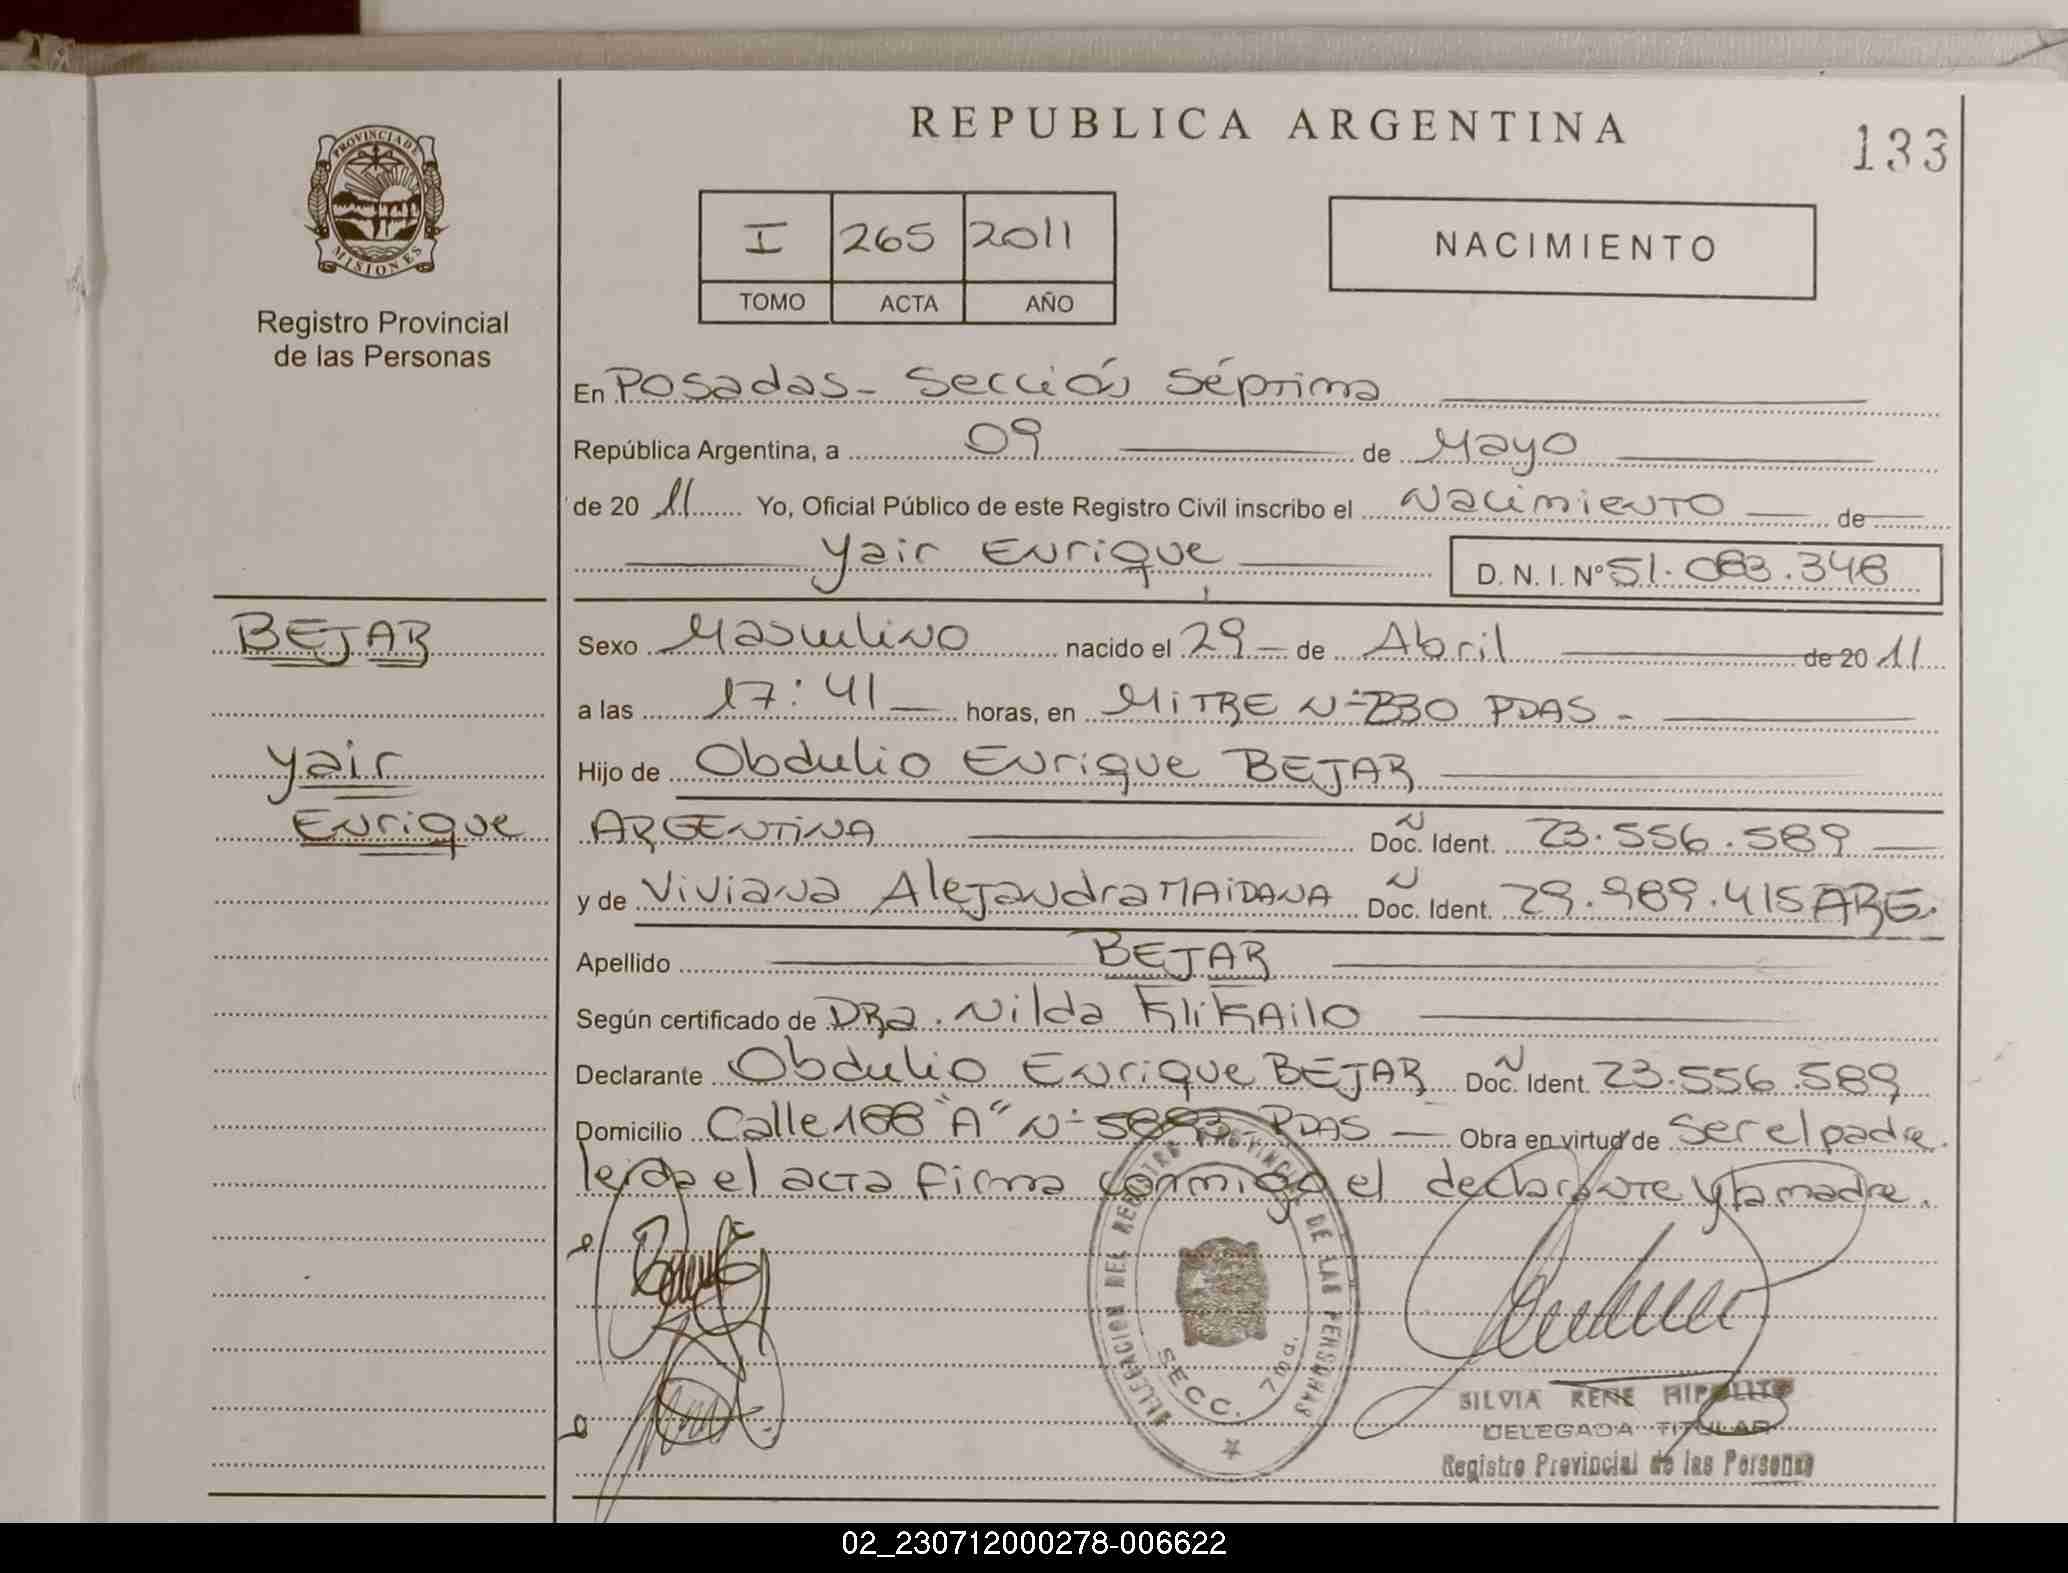 REPUBLICA ARGENTINA
133
PROVINCIA DE
MISIONES
Registro Provincial
de las Personas
I 265 2011
TOMO ACTA AÑO
NACIMIENTO
En Posadas - Sección Séptima
República Argentina, a 09 de Mayo
de 20 11 Yo, Oficial Público de este Registro Civil inscribo el Nacimiento de
Yair Enrique D. N. I. Nº 51.083.348
BEJAR
Yair
Enrique
Sexo Masculino nacido el 29 de Abril de 20 11
a las 17:41 horas, en MiTRE Nº 2330 PDAS -
Hijo de Obdulio Enrique BEJAR
ARGENTINA Doc. Ident. 23.556.589
y de Viviana Alejandra MAIDANA Doc. Ident. 29.989.415 ARG.
Apellido BEJAR
Según certificado de DRa. Nilda KliKAilo
Declarante Obdulio Enrique BEJAR Doc. Ident. 23.556.589
Domicilio Calle 168 "A" Nº 5883 PDAS Obra en virtud de ser el padre.
leida el acta firma conmigo el declarante y la madre.
DELEGACION DEL REGISTRO PROVINCIAL DE LAS PERSONAS
SECC. 7ma.
SILVIA RENE HIPOLITO
DELEGADA TITULAR
Registro Provincial de las Personas
02_230712000278-006622